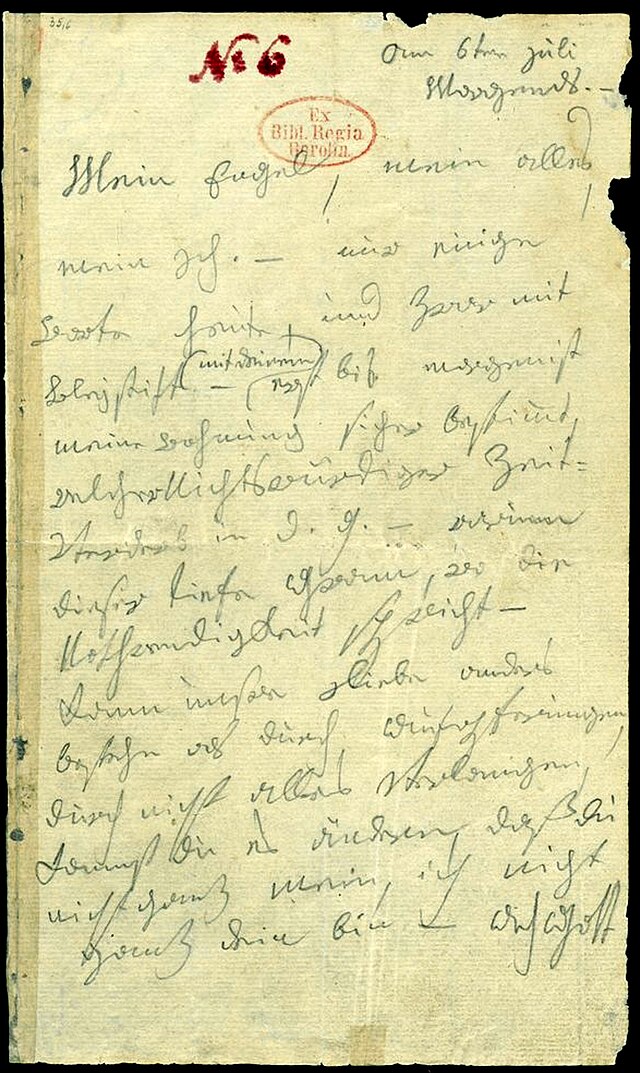 35,6
No 6
am 6ten juli
Morgends. –
Ex
Bibl. Regia
Berolin.
Mein Engel, mein alles,
mein Ich. – nur einige
Worte heute, und zwar mit
Bleystift – (mit deinem)
erst bis morgen ist
meine wohnung sicher bestimmt,
welcher Nichtswürdiger Zeit-
Verderb in d. g. – warum
dieser tiefe Gram, wo die
Nothwendigkeit spricht –
Kann unsre Liebe anders
bestehn als durch Aufopferungen,
durch nicht alles verlangen,
kannst du es ändern, daß du
nicht ganz mein, ich nicht
ganz dein bin – Ach Gott